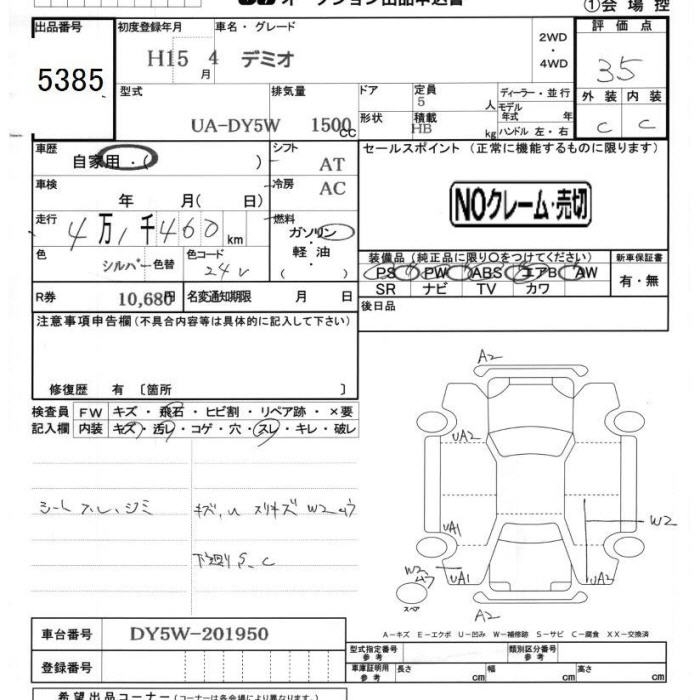 オークション出品申込書
①会場控
出品番号
5385
初度登録年月
H15 4月
車名・グレード
デミオ
2WD
・
4WD
評価点
35
型式
UA-DY5W
排気量
1500cc
ドア
5
定員
人
形状
HB
積載
kg
ディーラー・並行
モデル年式 年
ハンドル 左・右
外装 内装
C C
車歴
自家用・( )
シフト
AT
車検
年 月( 日)
冷房
AC
走行
4万1千460km
燃料
ガソリン
軽油
( )
色
シルバー
色替
色コード
24V
R券
10,680円
名変通知期限 月 日
セールスポイント (正常に機能するものに限ります)
NOクレーム・売切
装備品 (純正品に限り○をつけてください)
PS PW ABS エアB AW
SR ナビ TV カワ
新車保証書
有・無
後日品
注意事項申告欄(不具合内容等は具体的に記入して下さい)
修復歴 有 〔箇所 〕
検査員記入欄
FW キズ・飛石・ヒビ割・リペア跡・×要
内装 キズ・汚レ・コゲ・穴・スレ・キレ・破レ
シートスレ、シミ
キズ、U スリキズ W2 ムラ
下廻りS、C
A2
UA2
UA1
W2
W2
ムラ
UA1
UA2
スペア
A2
A-キズ E-エクボ U-凹み W-補修跡 S-サビ C-腐食 XX-交換済
車台番号
DY5W-201950
登録番号
型式指定番号
参考
類別区分番号
参考
車庫証明用
参考
長さ cm
幅 cm
高さ cm
希望出品コーナー(コーナーは各会場により異なります。)